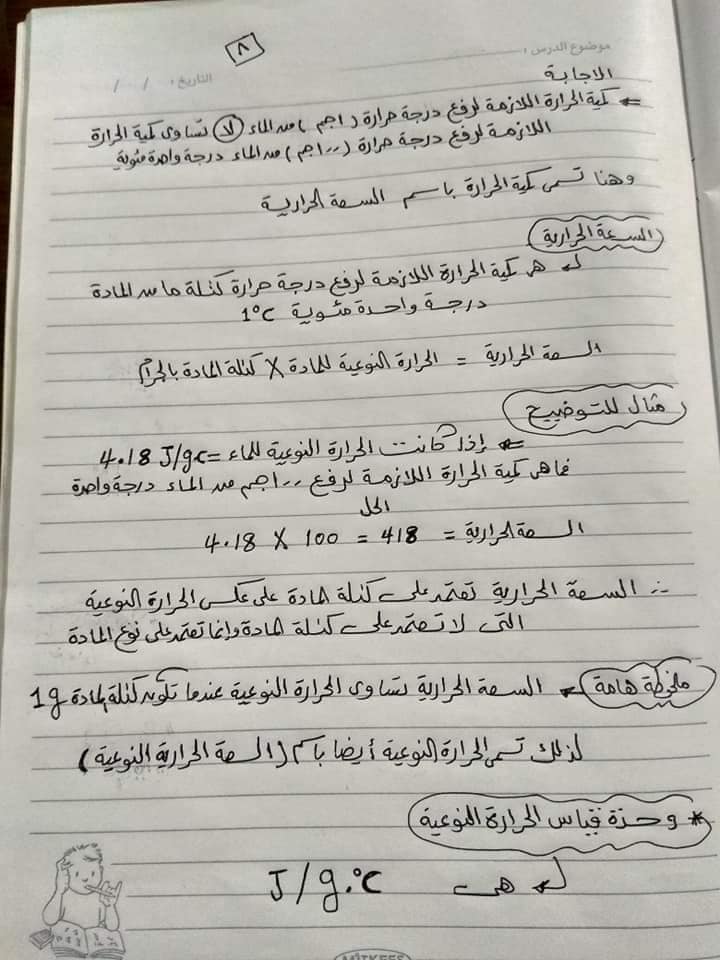 ٨
موضوع الدرس :
التاريخ : / /
الاجابة
كمية الحرارة اللازمة لرفع درجة حرارة (١جم) من الماء لا تساوى كمية الحرارة
اللازمة لرفع درجة حرارة (١٠٠جم) من الماء درجة واحدة مئوية
وهنا تسمى كمية الحرارة باسم السعة الحرارية
السعة الحرارية
هى كمية الحرارة اللازمة لرفع درجة حرارة كتلة ما من المادة
درجة واحدة مئوية 1°C
السعة الحرارية = الحرارة النوعية للمادة X كتلة المادة بالجرام
مثال للتوضيح
إذا كانت الحرارة النوعية للماء = 4.18 J/gc
فما هى كمية الحرارة اللازمة لرفع ١٠٠جم من الماء درجة واحدة
الحل
السعة الحرارية = 4.18 X 100 = 418
∴ السعة الحرارية تعتمد على كتلة المادة على عكس الحرارة النوعية
التى لا تعتمد على كتلة المادة وإنما تعتمد على نوع المادة
ملحوظة هامة السعة الحرارية تساوى الحرارة النوعية عندما تكون كتلة المادة 1g
لذلك تسمى الحرارة النوعية أيضا باسم (السعة الحرارية النوعية)
* وحدة قياس الحرارة النوعية
هى J/g.°C
MITKEES